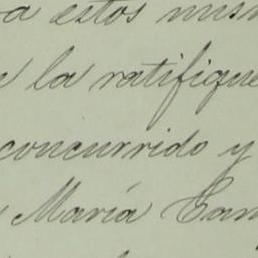 a estos mism
e la ratifique
concurrido y
María Cam